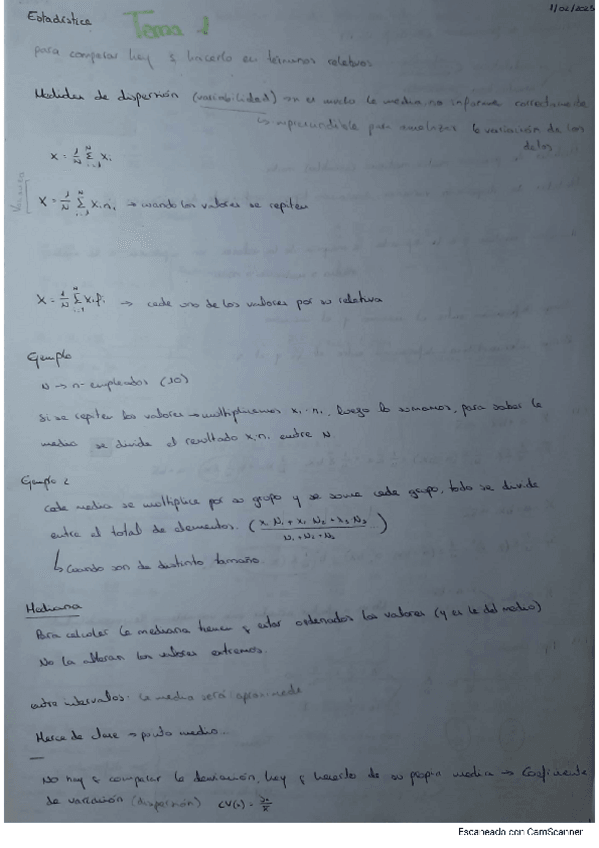 Estadística Tema 1 1/02/2023
para comparar hay q hacerlo en términos relativos
Medidas de dispersión (variabilidad) → n es malo la media no informa correctamente
↳ imprescindible para analizar la variación de los datos
X = 1/N Σ xi
X = 1/N Σ xi ni → cuando los valores se repiten
X = 1/N Σ xi fi → cada uno de los valores por su relativa
Ejemplo
N → nº empleados (10)
Si se repiten los valores → multiplicamos xi · ni, luego lo sumamos, para saber la
media se divide el resultado xi ni entre N.
Ejemplo 2
Cada media se multiplica por su grupo y se suma cada grupo, todo se divide
entre el total de elementos. (x1 N1 + x2 N2 + x3 N3 / N1 + N2 + N3)
↳ Cuando son de distinto tamaño.
Mediana
Para calcular la mediana tienen q estar ordenados los valores (y es la del medio)
No la alteran los valores extremos.
entre intervalos: la media será aproximada
Marca de clase → punto medio...
No hay q comparar la desviación, hay q hacerlo de su propia media → Coeficiente
de variación (dispersión) CV(x) =
Escaneado con CamScanner